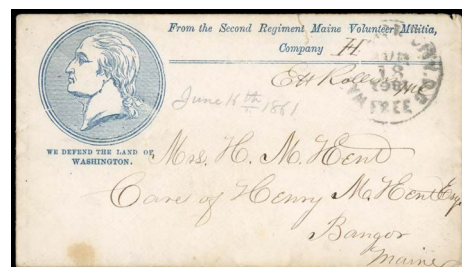 From the Second Regiment Maine Volunteer Militia,
Company H
18
1861
FREE
June 16th 1861
WE DEFEND THE LAND OF
WASHINGTON.
Mrs. H. M. Hent
Care of Henry M. Hent Esq
Bangor
Maine